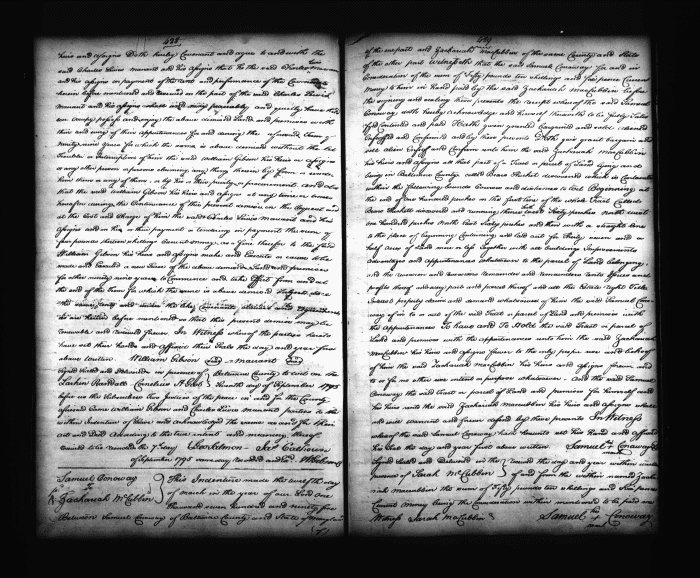 428
heirs and assigns Doth hereby Covenant and agree to and with the
said Charles Lewis his heirs and assigns that he the said Charles
and his assigns on payment of the rent and performance of the Covenants
herein before mentioned and reserved on the part of the said Charles Lewis
and his assigns shall and may peaceably and quietly have hold
use occupy possess and enjoy the above demised Land and premises
with their and every of their appurtenances for and during the aforesaid Term of
Ninety nine years for which the same is above demised without the let
Trouble or interruption of him the said William Gibson his heirs or assigns
or any other person or persons claiming any thing therein by from or under
him them or any of them, or by his or their privity or procurement, and also
that the said William Gibson his heirs and assigns at any time or times
hereafter during the Continuance of this present demise on the request and
at the Cost and charge of him the said Charles Lewis and his
assigns and on his or their payment or tendering in payment the sum of
four pounds sixteen shillings current money as a fine therefor to the said
William Gibson his heirs and assigns make and Execute or cause to be
made and Executed a new Lease of the above demised Land and premises
for other ninety nine years to Commence and take Effect from and at
the end of the Term for which the same is above demised subject to
the same rents and under the like Covenants
as are before mentioned so that this present demise may be
renewable and renewed forever. In Witness whereof the parties
have set their hands and affixed their seals the day and year first
above written William Gibson (seal)
Signed Sealed and delivered in presence of } Baltimore County to wit on the
Larkin Randall Cornelius H. Gist } Seventh day of September 1795
before us the subscribers two Justices of the peace in and for the County
aforesaid Came William Gibson and Charles Lewis parties to the
within Indenture of Lease and Acknowledged the same as and for their
act and Deed according to the true intent and meaning thereof
desired to be recorded the 7 day
of September 1795 same day recorded and Exd. Wm Gibson
Samuel Conoway
To
Zachariah McCubbin
} This Indenture made the twelfth day
of March in the year of our Lord one
thousand seven hundred and ninety five
Between Samuel Conway of Baltimore County and State of Maryland
429
of the one part and Zachariah McCubbin of the same County and State
of the other part Witnesseth that the said Samuel Conaway for and in
Consideration of the sum of Fifty pounds ten shillings and four pence Current
Money to him in Hand paid by the said Zachariah McCubbin before
the signing and sealing these presents the receipt whereof he the said Samuel
Conaway doth hereby acknowledge and himself therewith to be fully Satis
fyed Contented and paid Hath granted bargained and sold aliened
Enfeoffed and Confirmed and by these presents Doth give grant bargain and
sell alien Enfeoff and Confirm unto him the said Zachariah McCubbin
his heirs and assigns all that part of a Tract or parcel of Land lying and
being in Baltimore County called Brass Shackel
within the following bounds Courses and distances to wit Beginning at
the end of one hundred perches in the first line of the whole Tract Called
Brass Shackell and running thence East Sixty perches North west
one hundred perches North East sixty perches and then with a straight line
to the place of beginning Containing and laid out for Thirty seven and a
half Acres of Land more or less Together with all buildings Improvements
Advantages and appurtenances whatsoever to the parcel of Land belonging
and the reversion and reversions remainder and remainders rents issues and
profits thereof and every part and parcel thereof and all the Estate right Title
Interest property claim and demand whatsoever of him the said Samuel Con-
way of in to or out of the said Tract or parcel of Land and premises with
the Appurtenances To have and To Hold the said Tract or parcel of
Land and premises with the appurtenances unto him the said Zachariah
McCubbin his heirs and assigns forever to the only proper use and behoof
of him the said Zachariah McCubbin his heirs and assigns forever and
to or for no other use intent or purpose whatsoever. And the said Samuel
Conaway the said Tract or parcel of Land and premises for himself and
his heirs unto the said Zachariah McCubbin his heirs and assigns shall
and will warrant and forever defend by these presents In Witness
whereof the said Samuel Conway have hereunto set his Hand and affixed
his Seal the day and year first above written Samuel his Conaway
mark
Signed Sealed and delivered in the } received the day and year within written
presence of Sarah McCubbin } of and from the within named Zacha
riah McCubbin the sum of Fifty pounds ten shillings and four pence
Current Money being the Consideration within mentioned to be paid me
Witness Sarah McCubbin Samuel his Conoway
mark